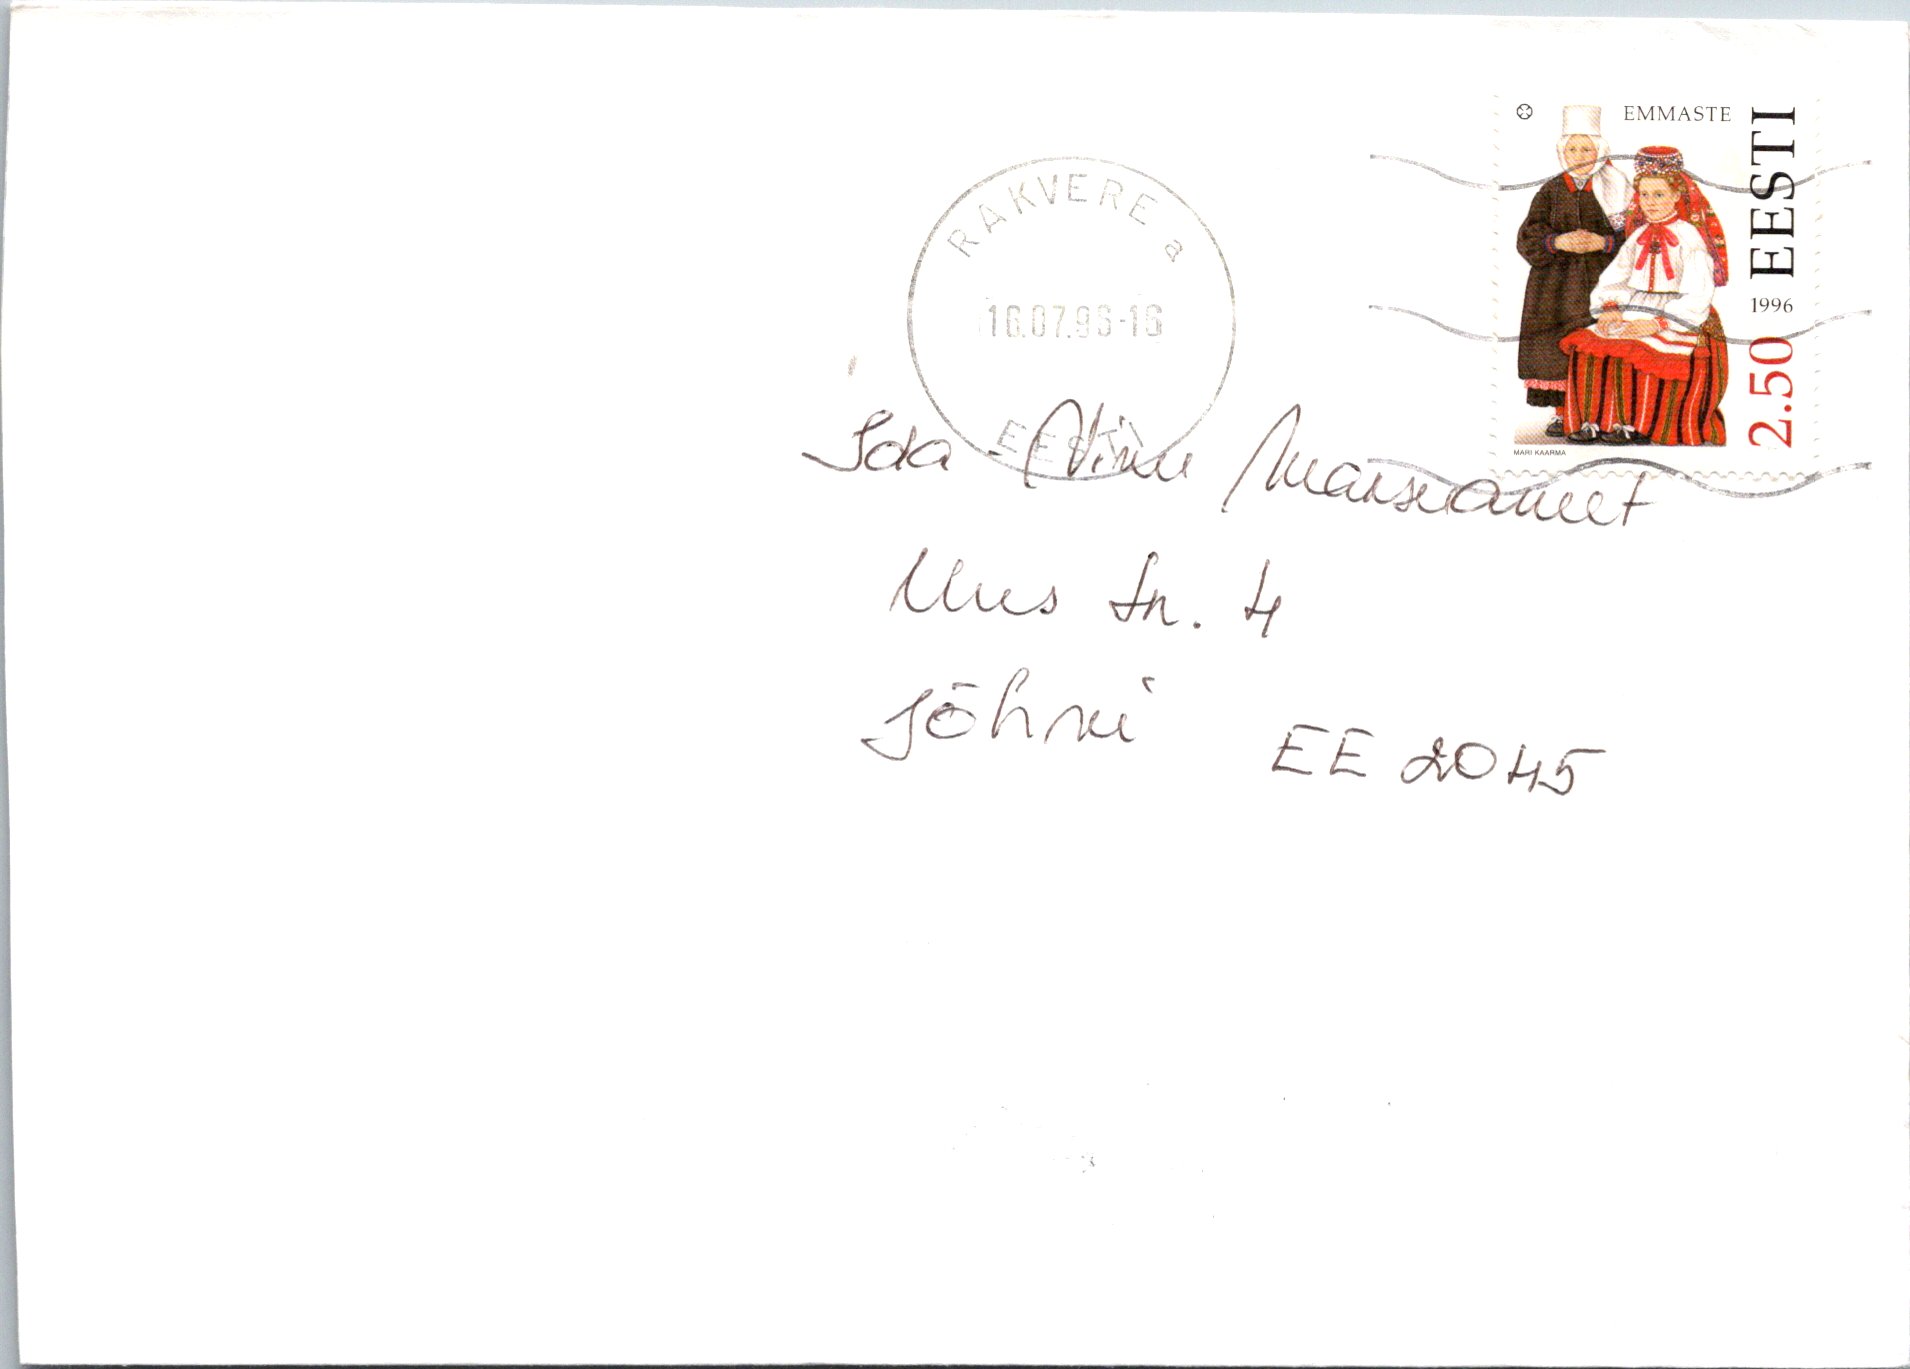 RAKVERE a
16.07.96-16
EESTI
EMMASTE
EESTI
1996
2.50
MARI KAARMA
Ida-Viru Maksuamet
Uus tn. 4
Jõhvi
EE 2045